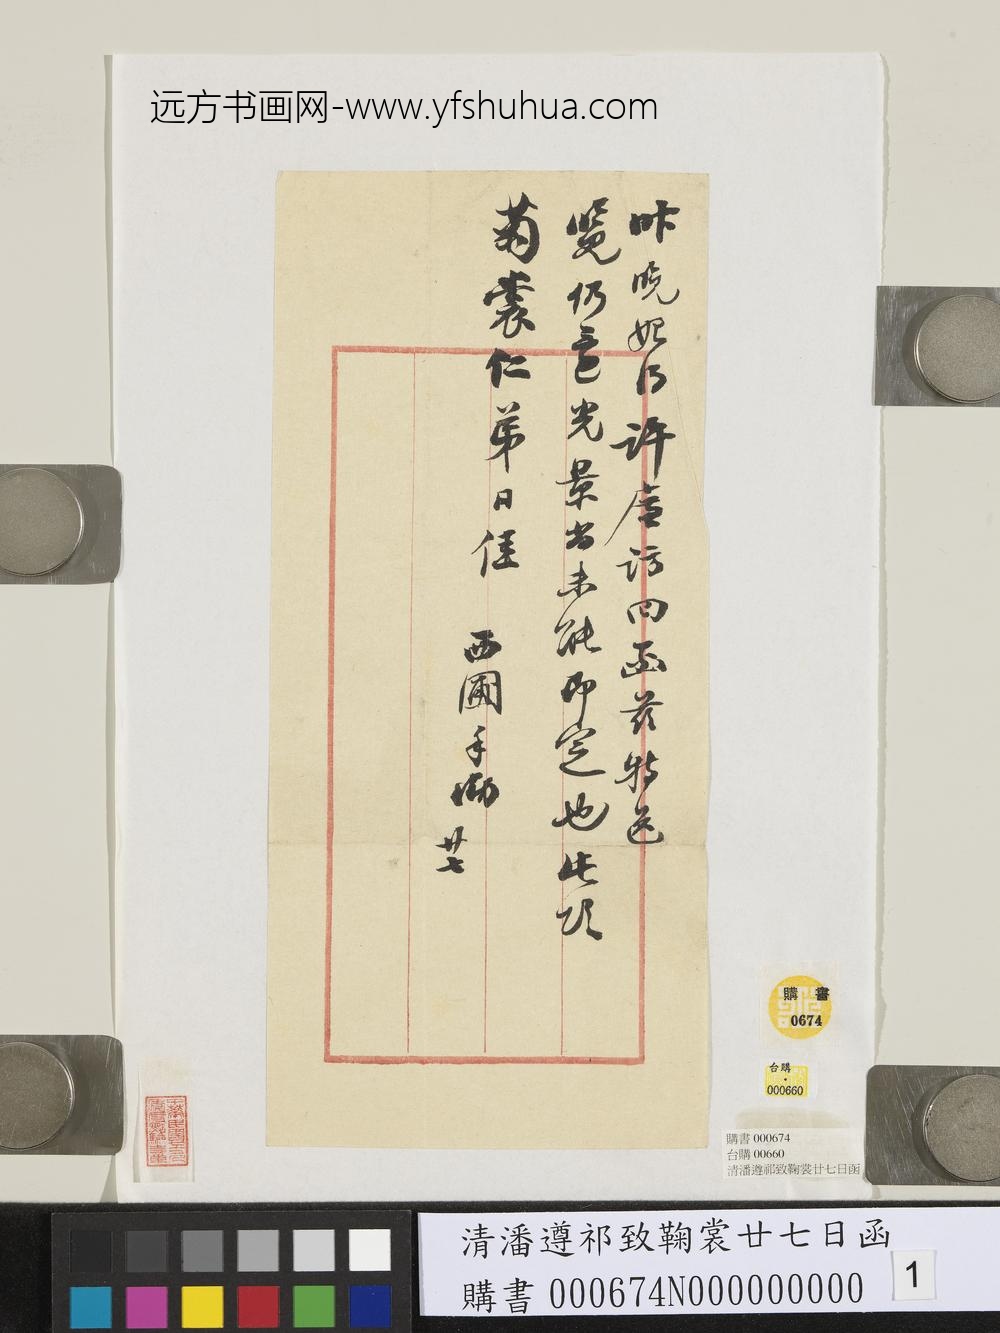 远方书画网-www.yfshuhua.com
昨晚始得許 訪回函茲特送
覽仍 光景尚未能即定也此頌
菊裳仁弟日佳
西圃手泐
廿七
購書
0674
台購
000660
購書 000674
台購 00660
清潘遵祁致鞠裳廿七日函
清潘遵祁致鞠裳廿七日函
購書 000674N000000000
1